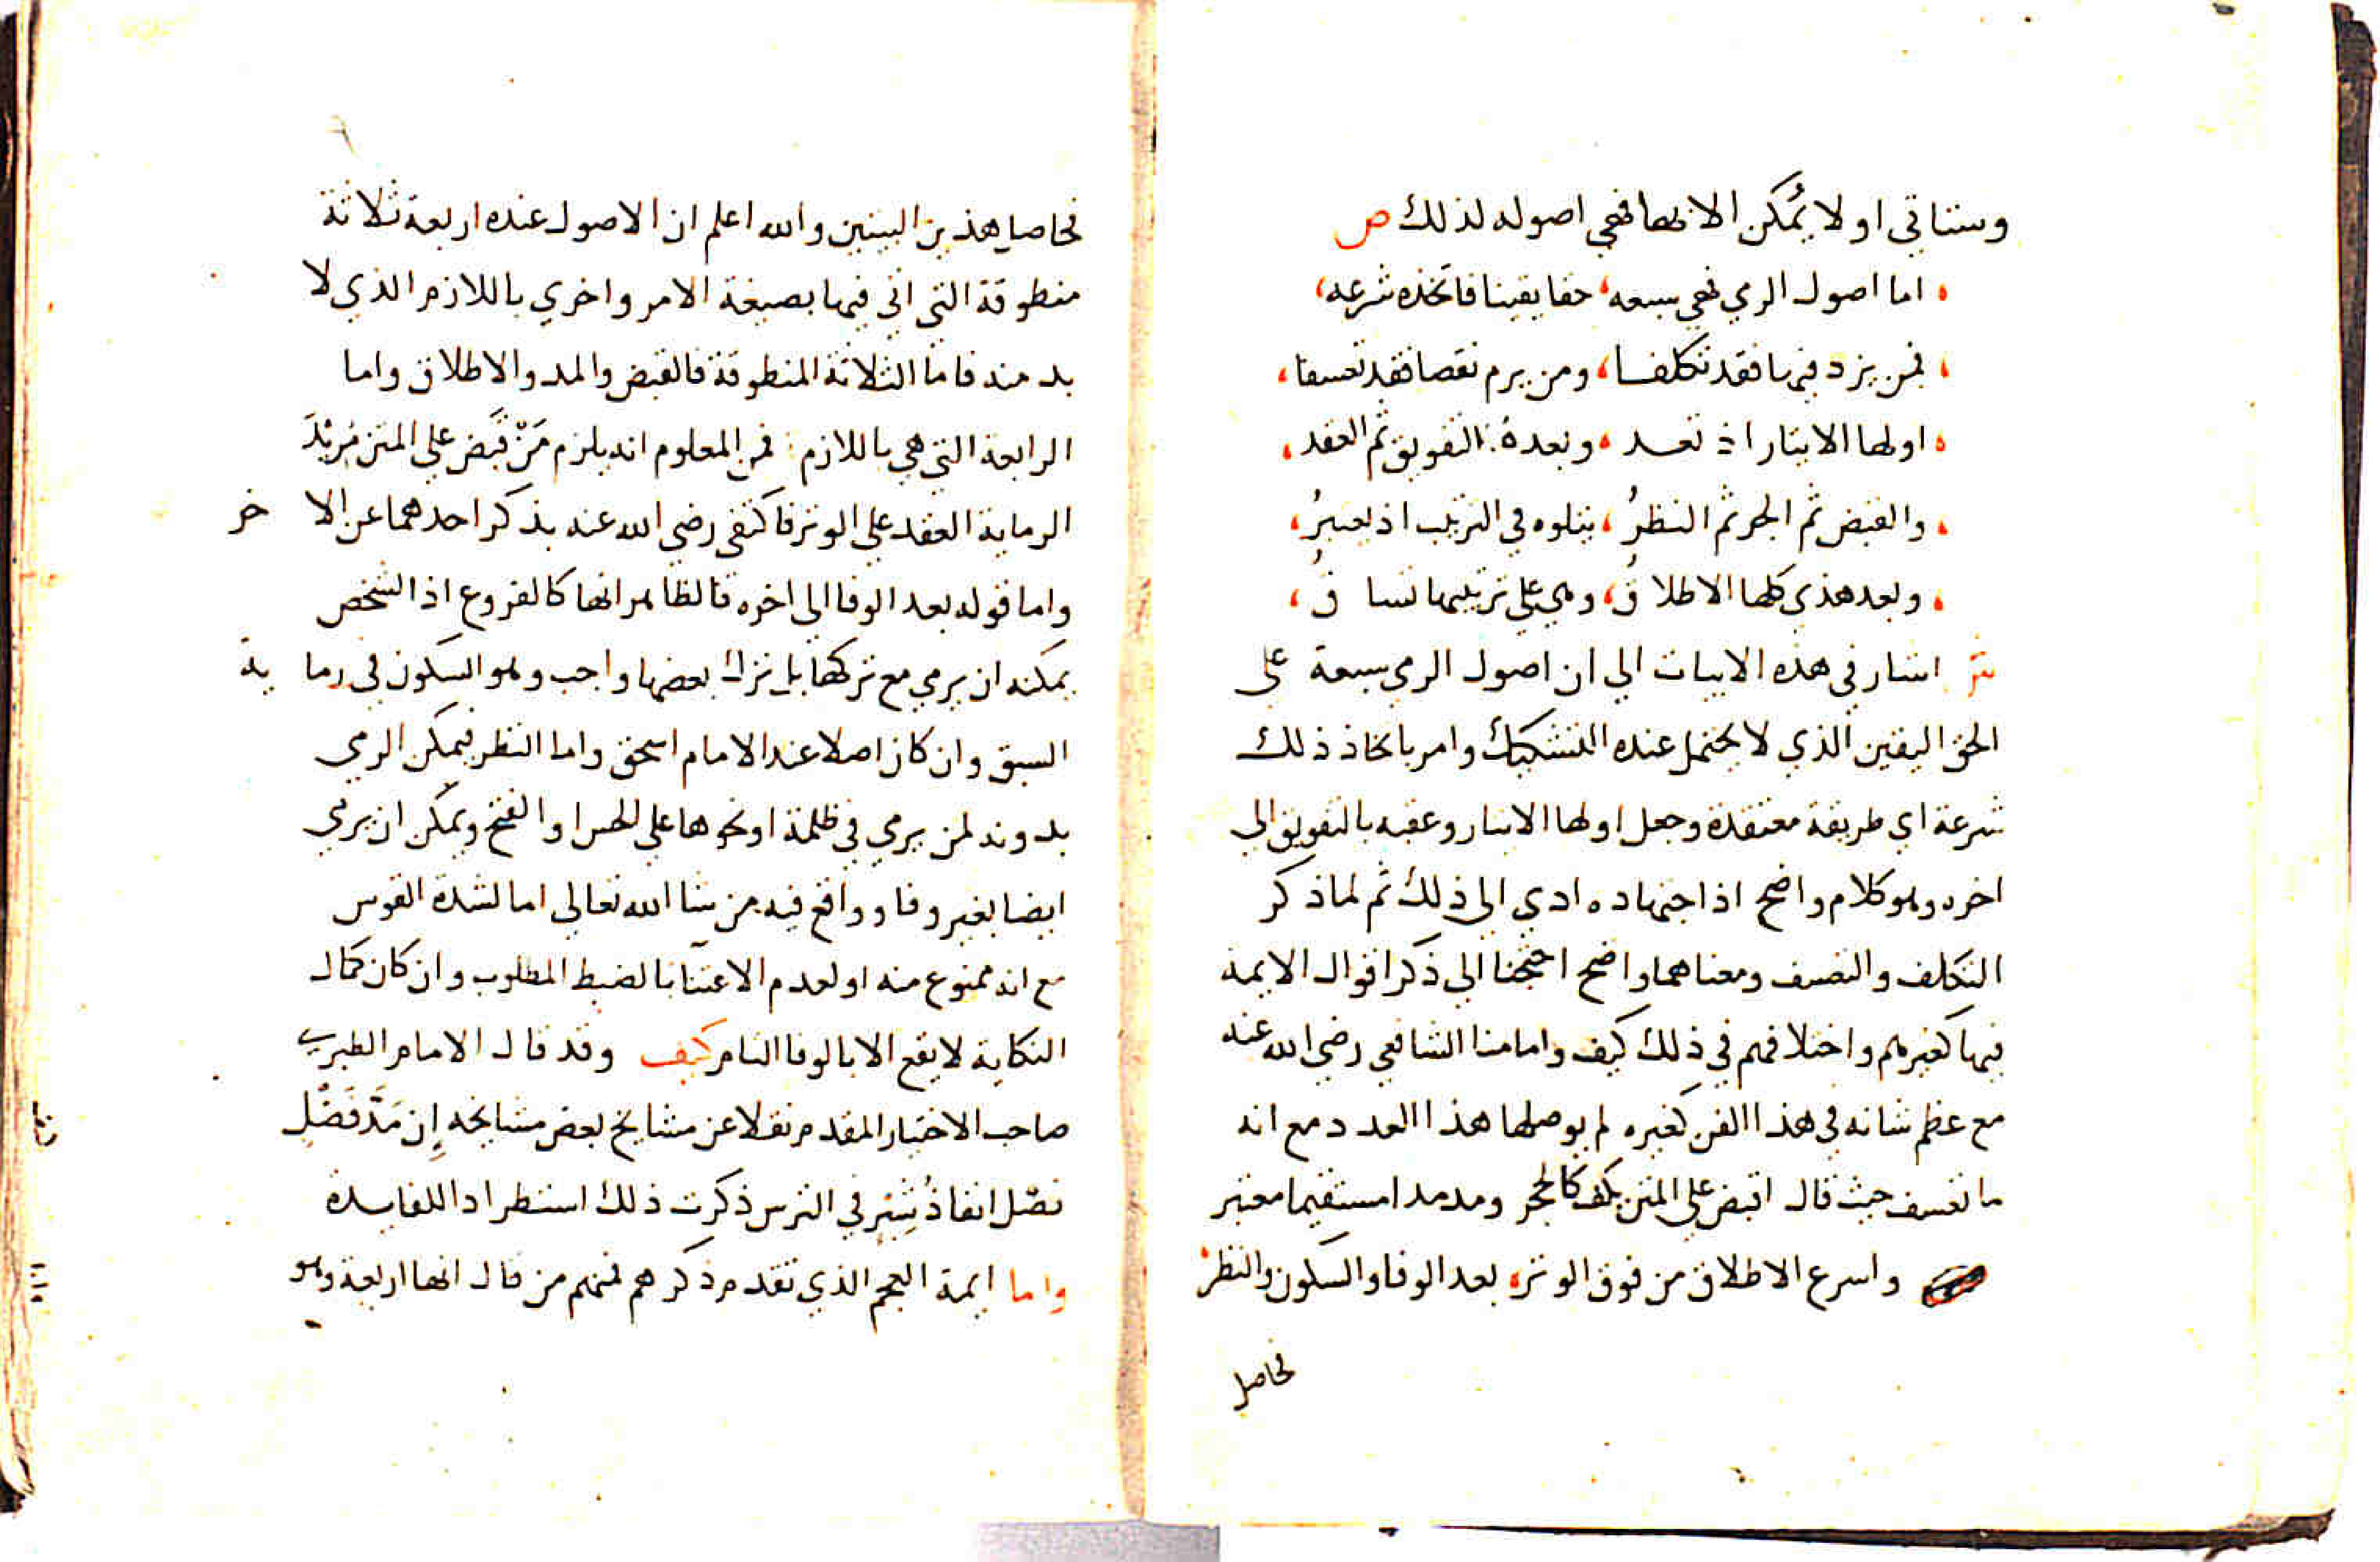 وستاتي او لا يمكن الا بها فهي اصوله لذلك ص
اما اصول الرمي فهي سبعه حقا يقينا فاتخذه شرعه
فمن يزد فيها فقد تكلفا ومن يرم نقصا فقد تعسفا
اولها الايتار اذ تعد وبعده التفويق ثم العقد
والقبض ثم الجر ثم النظرُ يتلوه في الترتيب اذ يعتبرُ
وبعد هذي كلها الاطلاقُ وهي علي ترتيبها تساقُ
ش اشار في هذه الابيات الي ان اصول الرمي سبعة علي
الحق اليقين الذي لا يحتمل عنده التشكيك وامر باتخاذ ذلك
شرعة اي طريقة معتقدة وجعل اولها الايتار وعقبه بالتفويق الي
اخره وهو كلام واضح اذ اجتهاده ادي الي ذلك ثم لما ذكر
التكلف والتعسف ومعناهما واضح احتجنا الي ذكر اقوال الايمة
فيها كغيرهم واختلافهم في ذلك كيف وامامنا الشافعي رضي الله عنه
مع عظم شانه في هذا الفن كغيره لم يوصلها هذا العدد مع انه
ما تعسف حيث قال اقبض علي المتن بكف كالحجر ومد مدا مستقيما معتبر
واسرع الاطلاق من فوق الوتر بعد الوفا والسكون والنظر
فحاصل
فحاصل هذين البيتين والله اعلم ان الاصول عنده اربعة ثلاثة
منطوقة التي اتي فيها بصيغة الامر واخري باللازم الذي لا
بد منه فاما الثلاثة المنطوقة فالقبض والمد والاطلاق واما
الرابعة التي هي باللازم فمن المعلوم انه يلزم مَنْ قَبَض علي المتن مُرِيْدَ
الرماية العقد علي الوتر فاكتفي رضي الله عنه بذكر احدهما عن الاخر
واما قوله بعد الوفا الي اخره فالظاهر انها كالفروع اذ الشخص
يمكنه ان يرمي مع تركها بل ترك بعضها واجب وهو السكون في رماية
السبق وان كان اصلا عند الامام اسحق واما النظر فيمكن الرمي
بدونه لمن يرمي في ظلمة او نحوها علي الحس او الفتح ويمكن ان يرمي
ايضا بغير وفا وواقع فيه من شا الله تعالي اما لشدة القوس
مع انه ممنوع منه او لعدم الاعتنا بالضبط المطلوب وان كان كمال
النكاية لا يقع الا بالوفا التام كيف وقد قال الامام الطبري
صاحب الاختيار المقدم نقلا عن مشايخ بعض مشايخه إن مَدّ فَضْل
نصْل انفاذُ شِبْر في الترس ذكرت ذلك استطرادا للفايدة
واما ايمة العجم الذي تقدم ذكرهم فمنهم من قال انها اربعة وهو